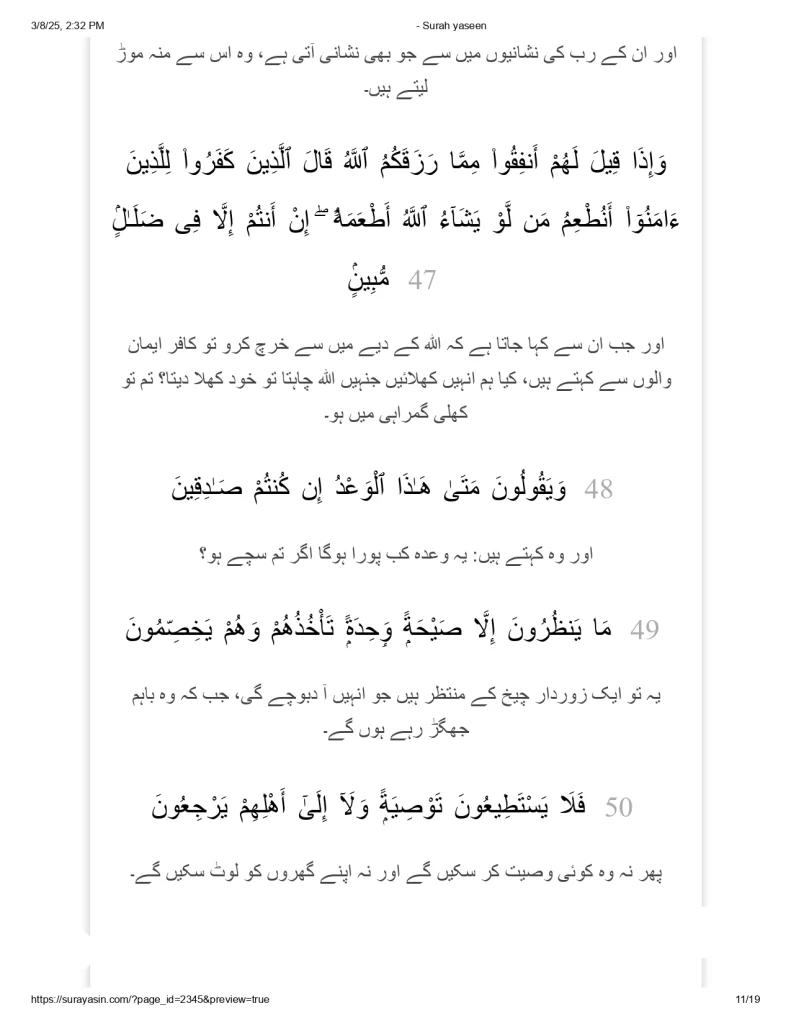 3/8/25, 2:32 PM - Surah yaseen
اور ان کے رب کی نشانیوں میں سے جو بھی نشانی آتی ہے، وہ اس سے منہ موڑ
لیتے ہیں۔
وَإِذَا قِيلَ لَهُمْ أَنفِقُوا۟ مِمَّا رَزَقَكُمُ ٱللَّهُ قَالَ ٱلَّذِينَ كَفَرُوا۟ لِلَّذِينَ
ءَامَنُوٓا۟ أَنُطْعِمُ مَن لَّوْ يَشَآءُ ٱللَّهُ أَطْعَمَهُۥٓ ۖ إِنْ أَنتُمْ إِلَّا فِى ضَلَـٰلٍۢ
مُّبِينٍۢ 47
اور جب ان سے کہا جاتا ہے کہ اللہ کے دیے میں سے خرچ کرو تو کافر ایمان
والوں سے کہتے ہیں، کیا ہم انہیں کھلائیں جنہیں اللہ چاہتا تو خود کھلا دیتا؟ تم تو
کھلی گمراہی میں ہو۔
48 وَيَقُولُونَ مَتَىٰ هَـٰذَا ٱلْوَعْدُ إِن كُنتُمْ صَـٰدِقِينَ
اور وہ کہتے ہیں: یہ وعدہ کب پورا ہوگا اگر تم سچے ہو؟
49 مَا يَنظُرُونَ إِلَّا صَيْحَةًۭ وَٟحِدَةًۭ تَأْخُذُهُمْ وَهُمْ يَخِصِّمُونَ
یہ تو ایک زوردار چیخ کے منتظر ہیں جو انہیں آ دبوچے گی، جب کہ وہ باہم
جھگڑ رہے ہوں گے۔
50 فَلَا يَسْتَطِيعُونَ تَوْصِيَةًۭ وَلَآ إِلَىٰٓ أَهْلِهِمْ يَرْجِعُونَ
پھر نہ وہ کوئی وصیت کر سکیں گے اور نہ اپنے گھروں کو لوٹ سکیں گے۔
https://surayasin.com/?page_id=2345&preview=true 11/19